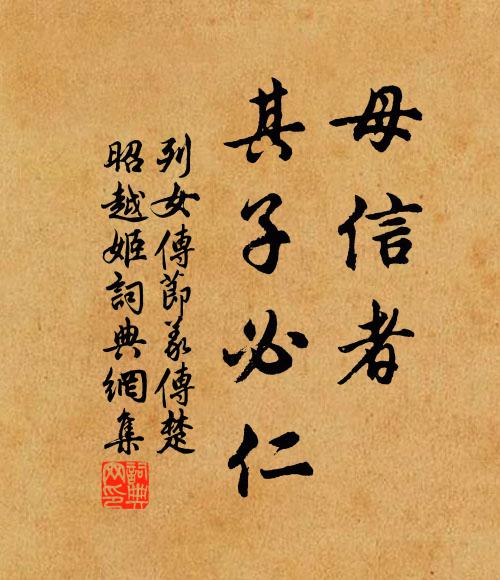 母信者
其子必仁
列女傳節義傳楚
昭越姬詞典網集
詞典網印